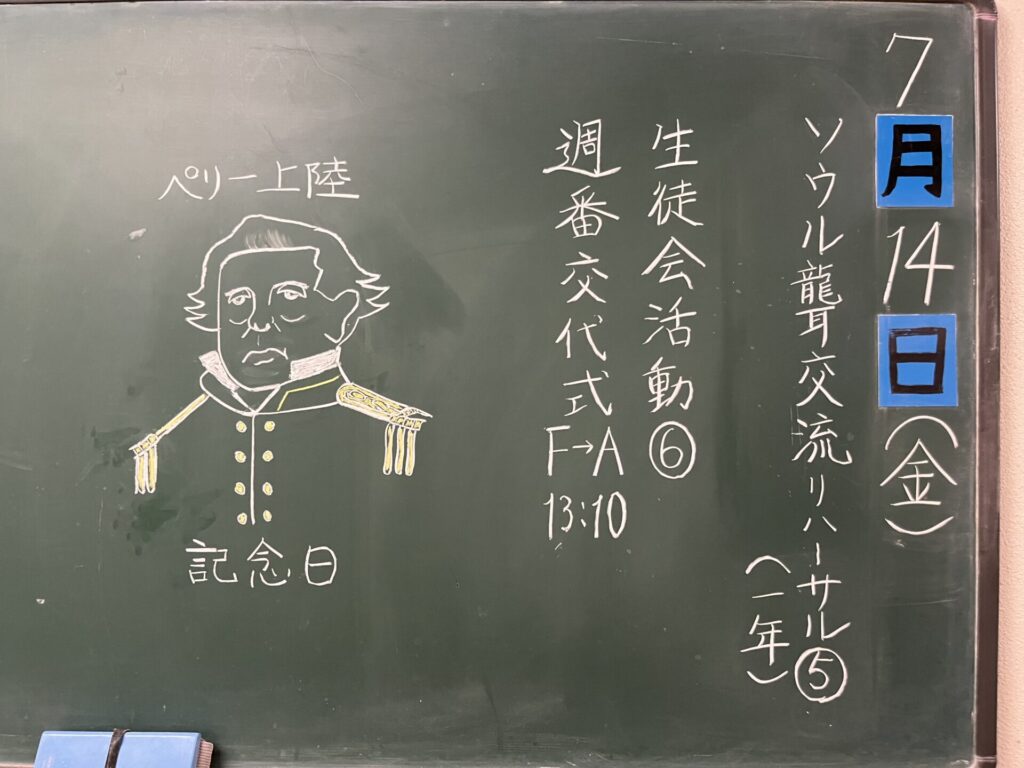 7月14日(金)
ソウル龍耳交流リハーサル⑤
(一年)
生徒会活動⑥
週番交代式F→A
13:10
ペリー上陸
記念日